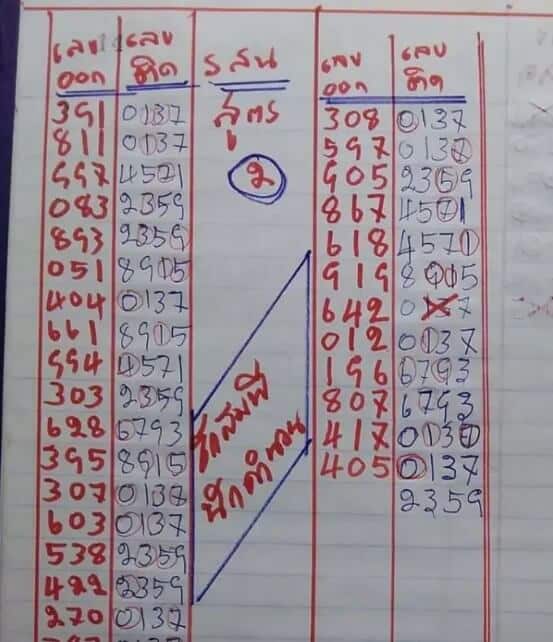 เลข เลข
ออก ติด
391 0137
811 0137
997 4571
083 2359
893 2359
051 8915
404 0137
661 8915
994 4571
303 2359
628 6793
395 8915
307 0137
603 0137
538 2359
422 2359
270 0137
รสน
สูตร
2
นักคำนวน
เลข เลข
ออก ติด
308 0137
597 0137
905 2359
867 4571
618 4571
919 8915
642 0137
012 0137
196 6793
807 6793
417 0137
405 0137
2359